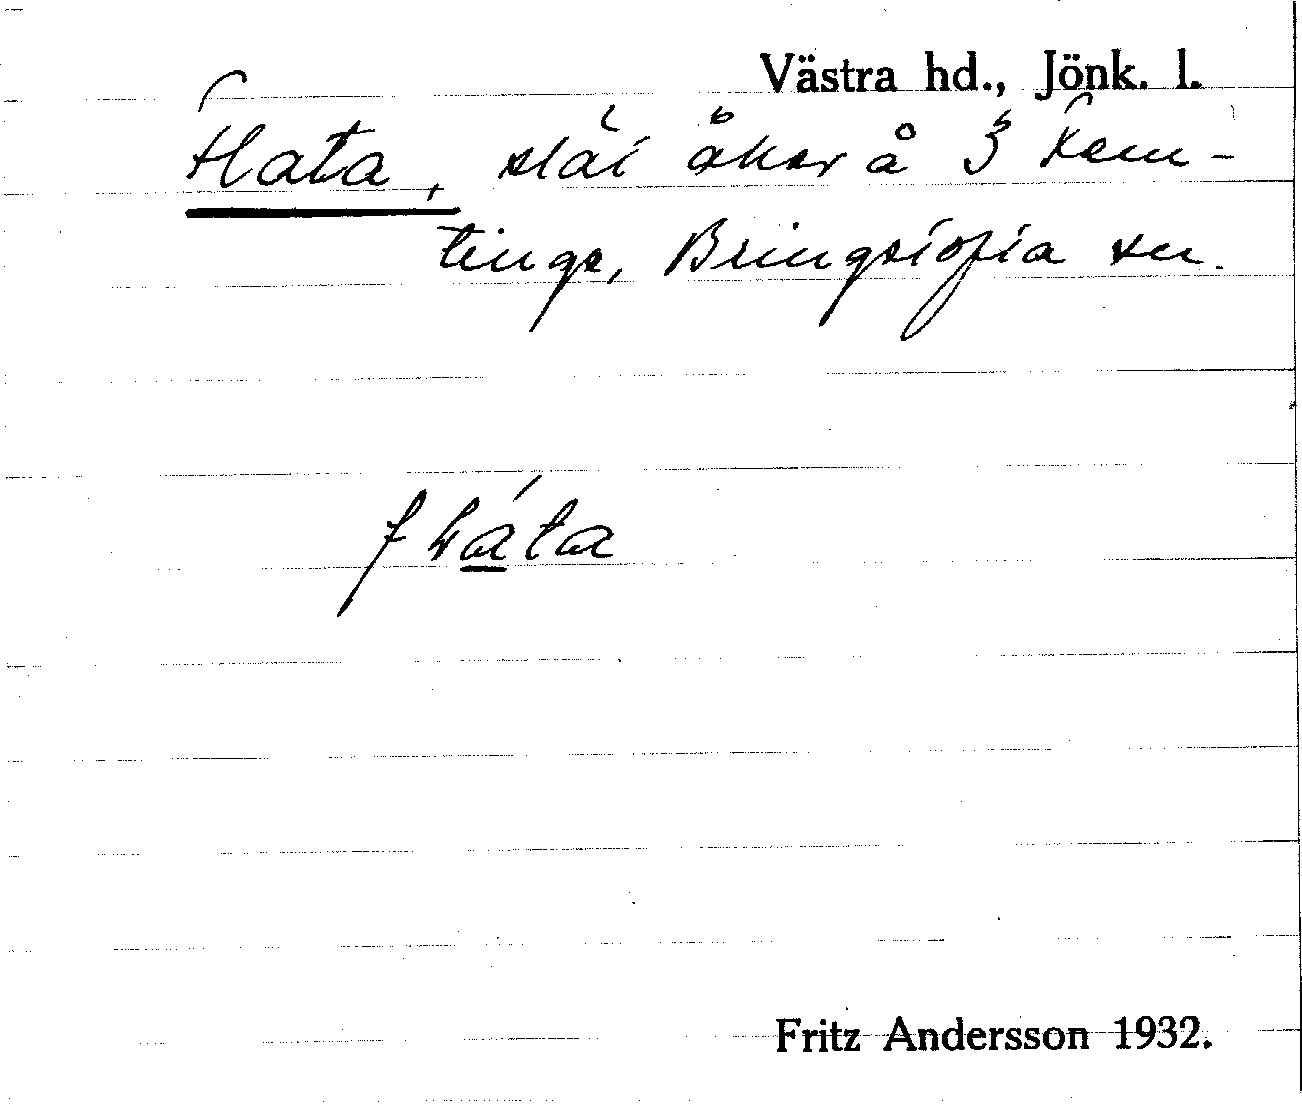 Västra hd., Jönk. l.
Hata, slät åker å 3 Kem-
tinge, Bringetofta sn.
hata
Fritz Andersson 1932.